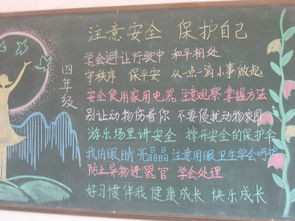 注意安全 保护自己
四年级
学会避让行驶中 和平相处
守秩序 保平安 从一点一滴小事做起
安全使用家用电器 注意观察掌握方法
别让动物伤着你 不要侵扰动物家园
游乐场里讲安全 撑开安全的保护伞
我的眼睛亮晶晶 注意用眼卫生学会呵护
防止异物进器官 学会处理
好习惯伴我健康成长 快乐成长